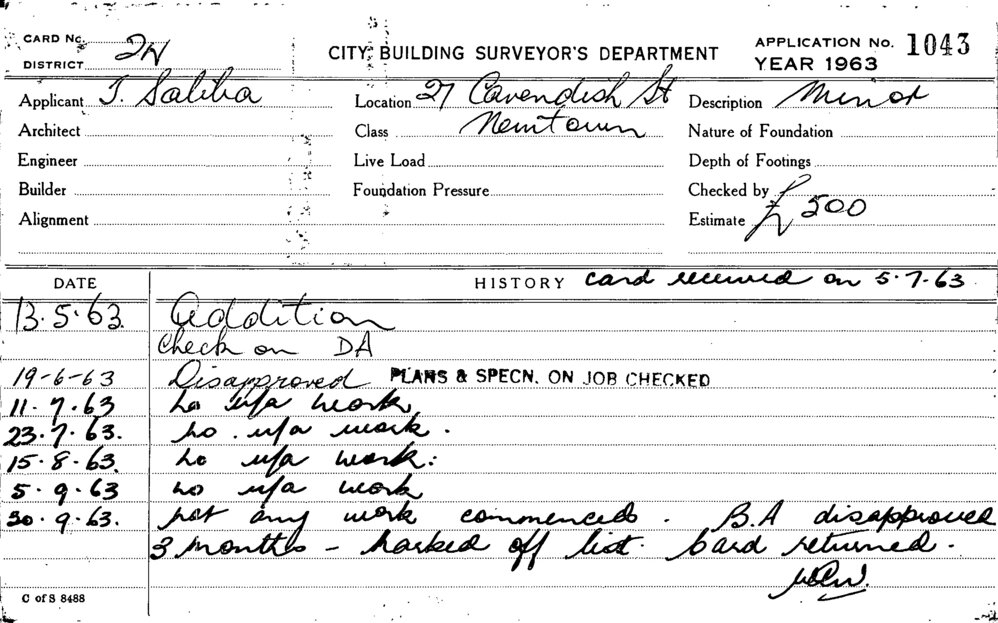 CARD No. 2N
DISTRICT
CITY BUILDING SURVEYOR'S DEPARTMENT
APPLICATION No. 1043
YEAR 1963
Applicant J. Saliba Location 27 Cavendish St Description Minor
Architect Class Newtown Nature of Foundation
Engineer Live Load Depth of Footings
Builder Foundation Pressure Checked by
Alignment Estimate £500
DATE HISTORY card received on 5.7.63
13.5.63. Addition
Check on DA
19-6-63 Disapproved PLANS & SPECN. ON JOB CHECKED
11.7.63 no u/a work
23.7.63. no u/a work.
15.8.63. no u/a work.
5.9.63 no u/a work
30.9.63. not any work commenced. B.A disapproved
3 months – marked off list. Card returned.
C of S 8488